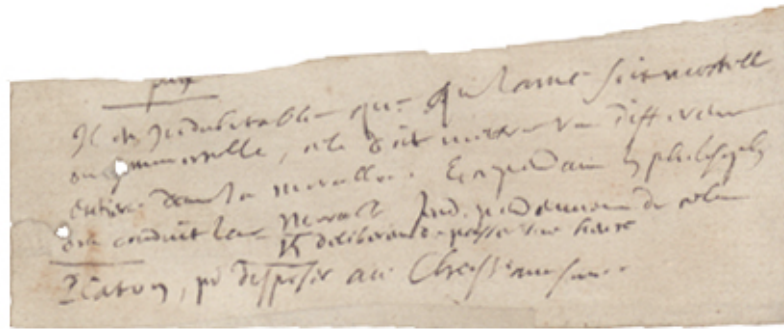 Il est indubitable que que lame soit mortelle
ou immortelle, cela doit mettre une difference
entiere dans la moralle. Et cependant les philosophes
ont conduit leur moralle Independemment de cela
Ils deliberent de passer une heure
Platon, pr disposer au Christianisme.